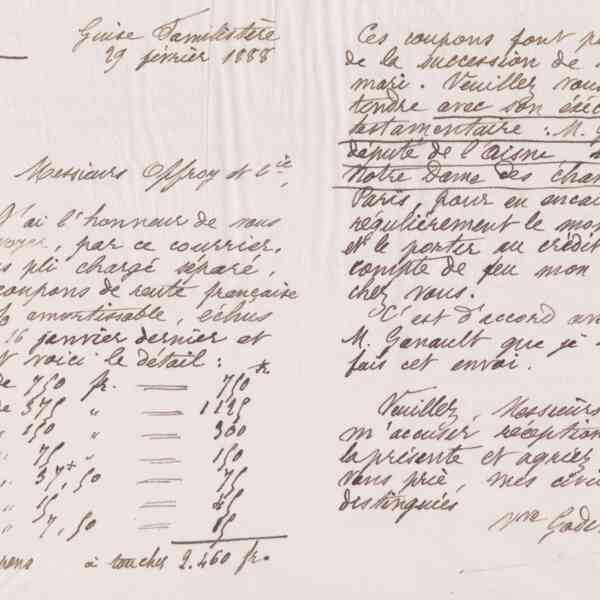 Guise Familistère
29 février 1888
Messieurs Offroy et Cie,
J'ai l'honneur de vous
par ce courrier,
pli chargé séparé,
coupons de rente française
amortissable, échus
16 janvier dernier et
voici le détail :
de 750 fr. 750 fr
de 375 " 1125
" 150 " 300
" 75 " 150
" 37,50 75
" 15 " 45
" 7,50 15
à toucher 2.460 fr.
Ces coupons font
de la succession de
mari. Veuillez vous
tendre avec son
testamentaire : M.
député de l'Aisne
Notre Dame des
Paris, pour en
régulièrement le
et le porter au crédit
compte de feu mon
chez vous.
C'est d'accord
M. Ganault que je
fais cet envoi.
Veuillez, Messieurs
m'accuser réception
la présente et agréer
vous prie, mes
distinguées
Vve